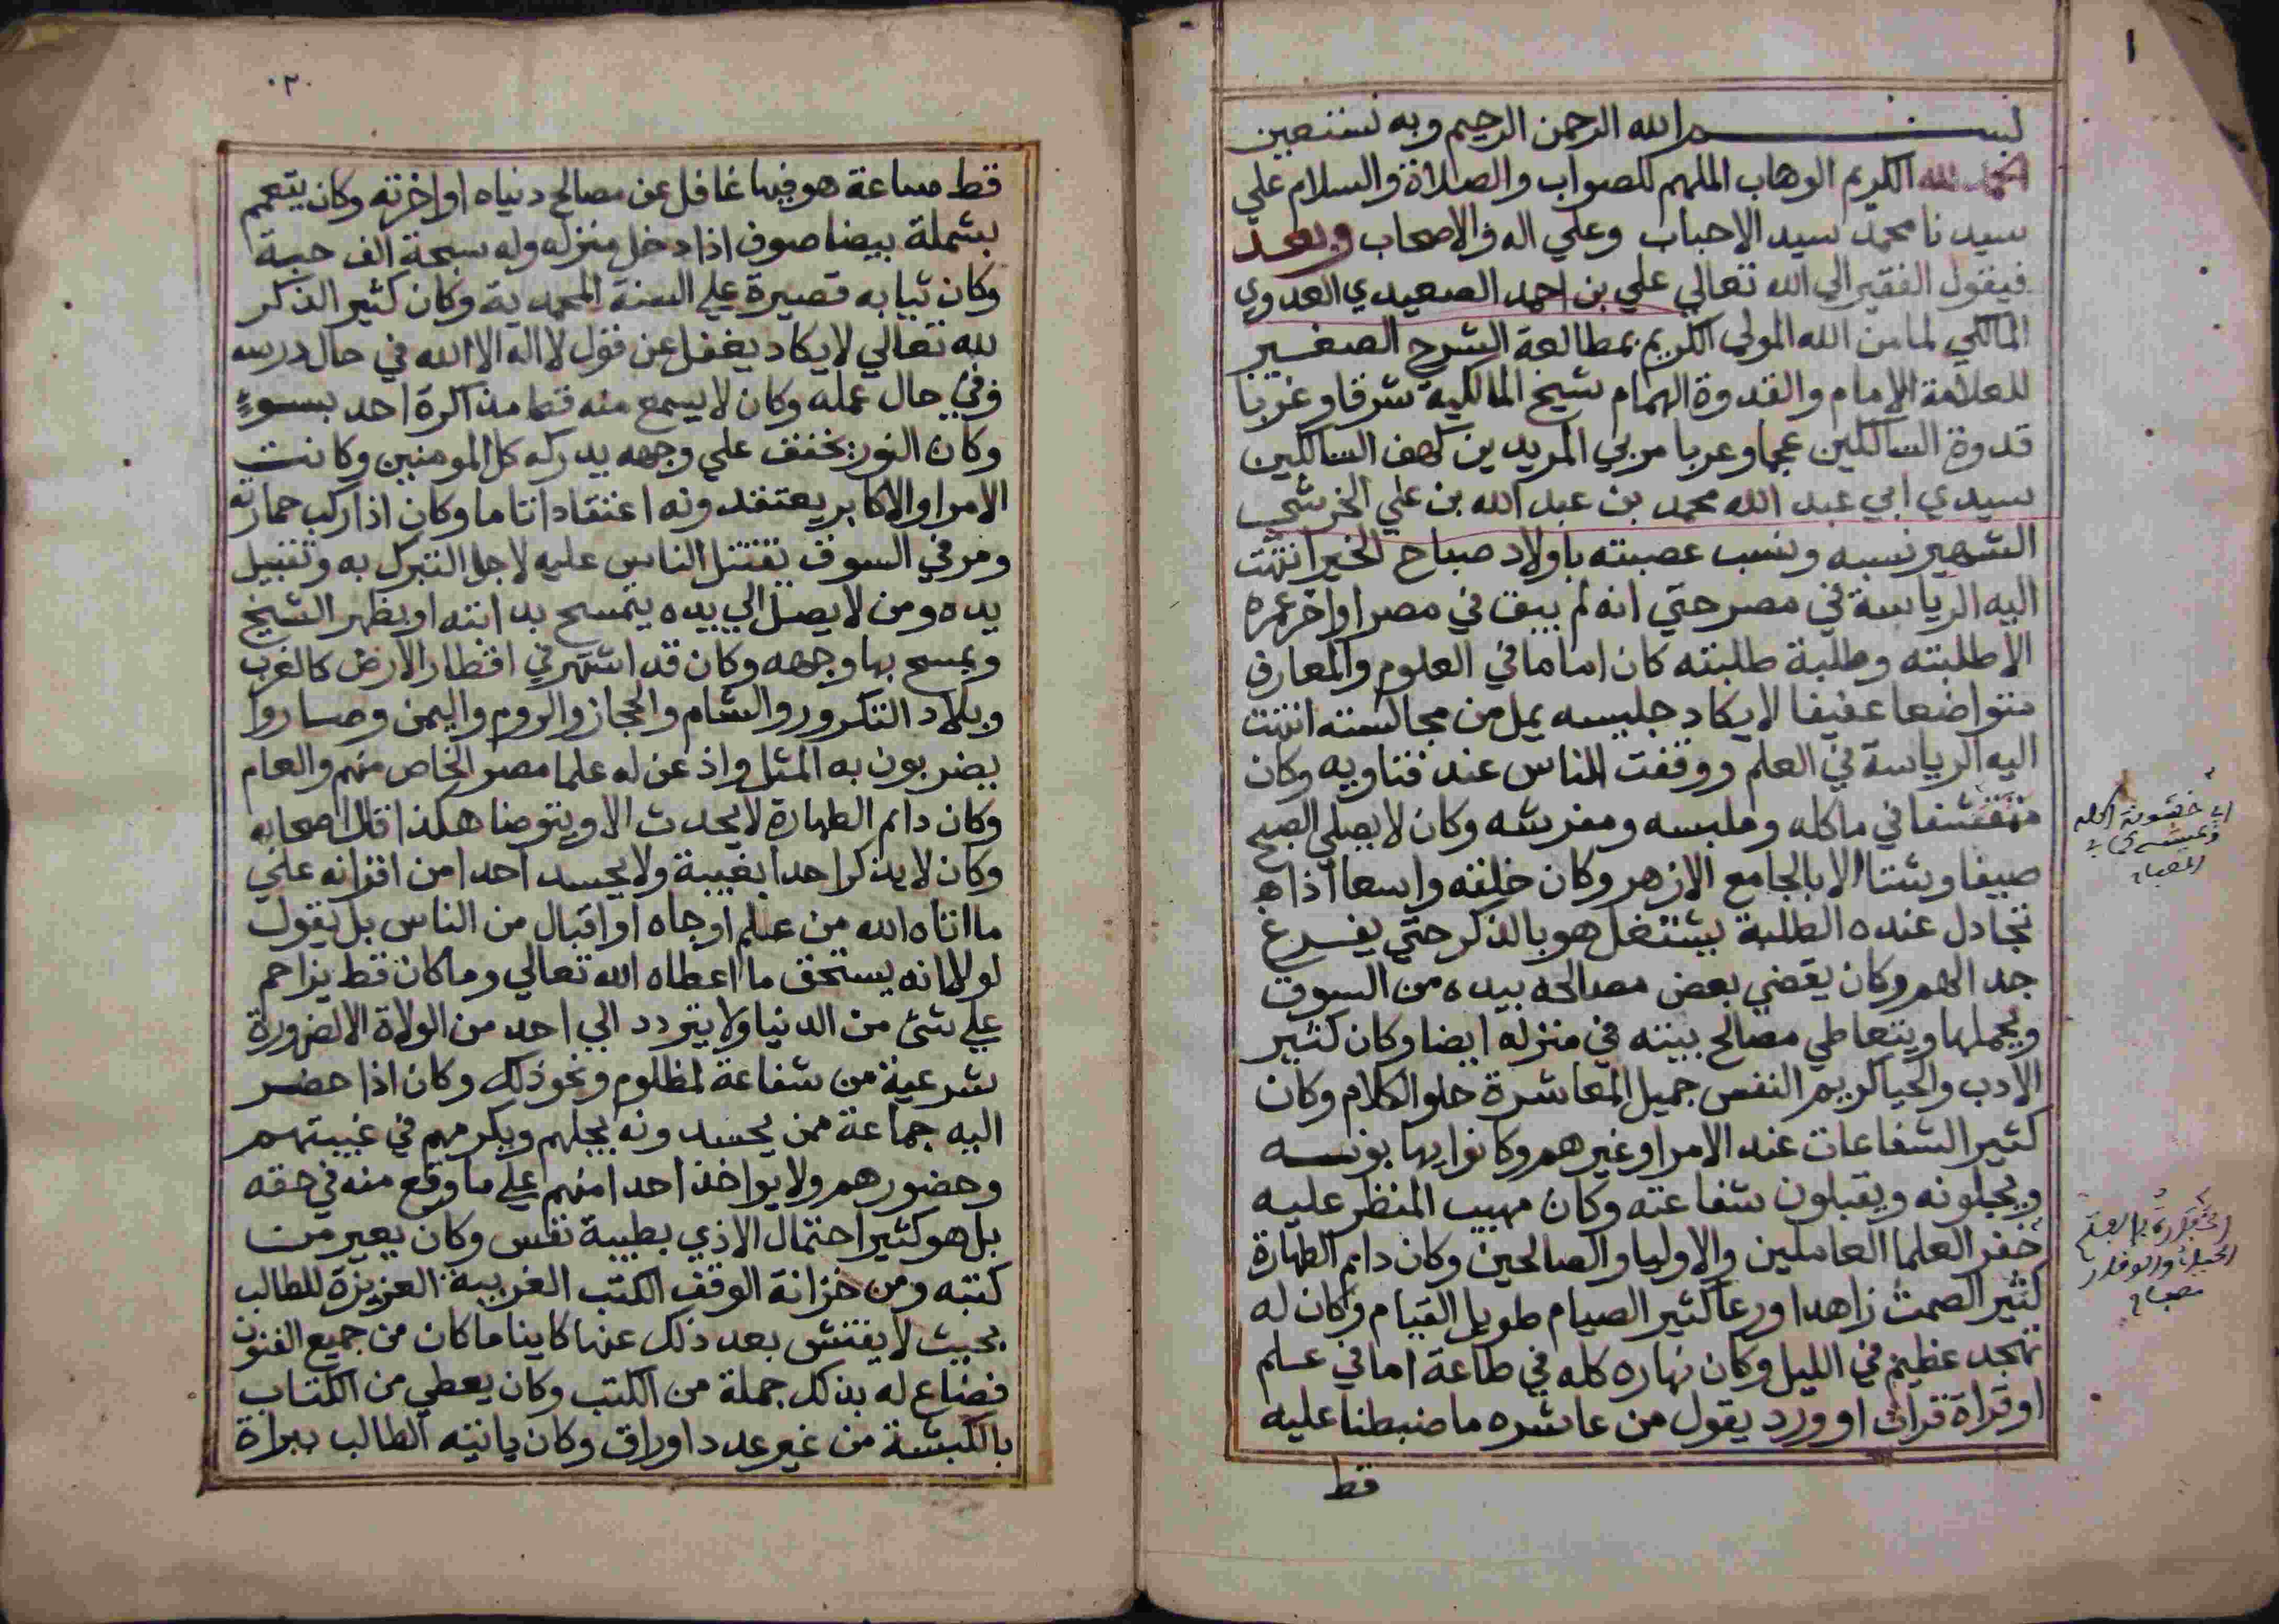 ١
بسم الله الرحمن الرحيم وبه نستعين
الحمد لله الكريم الوهاب الملهم للصواب والصلاة والسلام علي
سيدنا محمد سيد الاحباب وعلي اله والاصحاب وبعد
فيقول الفقير الي الله تعالي علي بن احمد الصعيدي العدوي
المالكي لما من الله المولي الكريم بمطالعة الشرح الصغير
للعلامة الامام والقدوة الهمام شيخ المالكية شرقا وغربا
قدوة السالكين عجما وعربا مربي المريدين كهف السالكين
سيدي ابي عبد الله محمد بن عبد الله بن علي الخرشي
الشهير نسبه ونسب عصبته باولاد صباح الخير انتهت
اليه الرياسة في مصر حتي انه لم يبق في مصر اواخر عمره
الا طلبته وطلبة طلبته كان اماما في العلوم والمعارف
متواضعا عفيفا لا يكاد جليسه يمل من مجالسته انتهت
اليه الرياسة في العلم ووقفت الناس عند فتاويه وكان
متقشفا في ماكله وملبسه ومفرشه وكان لا يصلي الصبح
صيفا وشتا الا بالجامع الازهر وكان خلقه واسعا اذا
تجادل عنده الطلبة يشتغل هو بالذكر حتي يفرغ
جدالهم وكان يقضي بعض مصالحه بيده من السوق
ويحملها ويتعاطي مصالح بيته في منزله ايضا وكان كثير
الادب والحيا كريم النفس جميل المعاشرة حلو الكلام وكان
كثير الشفاعات عند الامرا وغيرهم وكانوا يهابونه
ويجلونه ويقبلون شفاعته وكان مهيب المنظر عليه
خفر العلما العاملين والاوليا والصالحين وكان دايم الطهارة
كثير الصمت زاهدا ورعا كثير الصيام طويل القيام وكان له
تهجد عظيم في الليل وكان نهاره كله في طاعة اما في علم
او قراة قران او ورد يقول من عاشره ما ضبطنا عليه
قط
المصباح
مصباح
٢٠
قط ساعة هو فيها غافل عن مصالح دنياه او اخرته وكان يتعمم
بشملة بيضا صوف اذا دخل منزله وله سبحة الف حبة
وكان ثيابه قصيرة علي السنة المحمدية وكان كثير الذكر
لله تعالي لا يكاد يغفل عن قول لا اله الا الله في حال درسه
وفي حال عمله وكان لا يسمع منه قط مذاكرة احد بسوء
وكان النور يخفف علي وجهه يدركه كل المومنين وكانت
الامرا والاكابر يعتقدونه اعتقادا تاما وكان اذا ركب حمارته
ومر في السوق تقتتل الناس عليه لاجل التبرك به وتقبيل
يده ومن لا يصل الي يده يتمسح بدابته او بظهر الشيخ
ويمسح بها وجهه وكان قد اشتهر في اقطار الارض كالغرب
وبلاد التكرور والشام والحجاز والروم واليمن وصاروا
يضربون به المثل واذعن له علما مصر الخاص منهم والعام
وكان دايم الطهارة لا يحدث الا ويتوضا هكذا قال اصحابه
وكان لا يذكر احدا بغيبة ولا يحسد احدا من اقرانه علي
ما اتاه الله من علم او جاه او اقبال من الناس بل يقول
لولا انه يستحق ما اعطاه الله تعالي وما كان قط يزاحم
علي شئ من الدنيا ولا يتردد الي احد من الولاة الا لضرورة
شرعية من شفاعة لمظلوم ونحو ذلك وكان اذا حضر
اليه جماعة ممن يحسدونه يجلهم ويكرمهم في غيبتهم
وحضورهم ولا يواخذ احدا منهم علي ما وقع منه في حقه
بل هو كثير احتمال الاذي بطيبة نفس وكان يعير من
كتبه ومن خزانة الوقف الكتب الغريبة العزيزة للطالب
بحيث لا يفتش بعد ذلك عنها كاينا ما كان من جميع الفنون
فضاع له بذلك جملة من الكتب وكان يعطي من الكتاب
بالكبشة من غير عدد اوراق وكان ياتيه الطالب ببراة